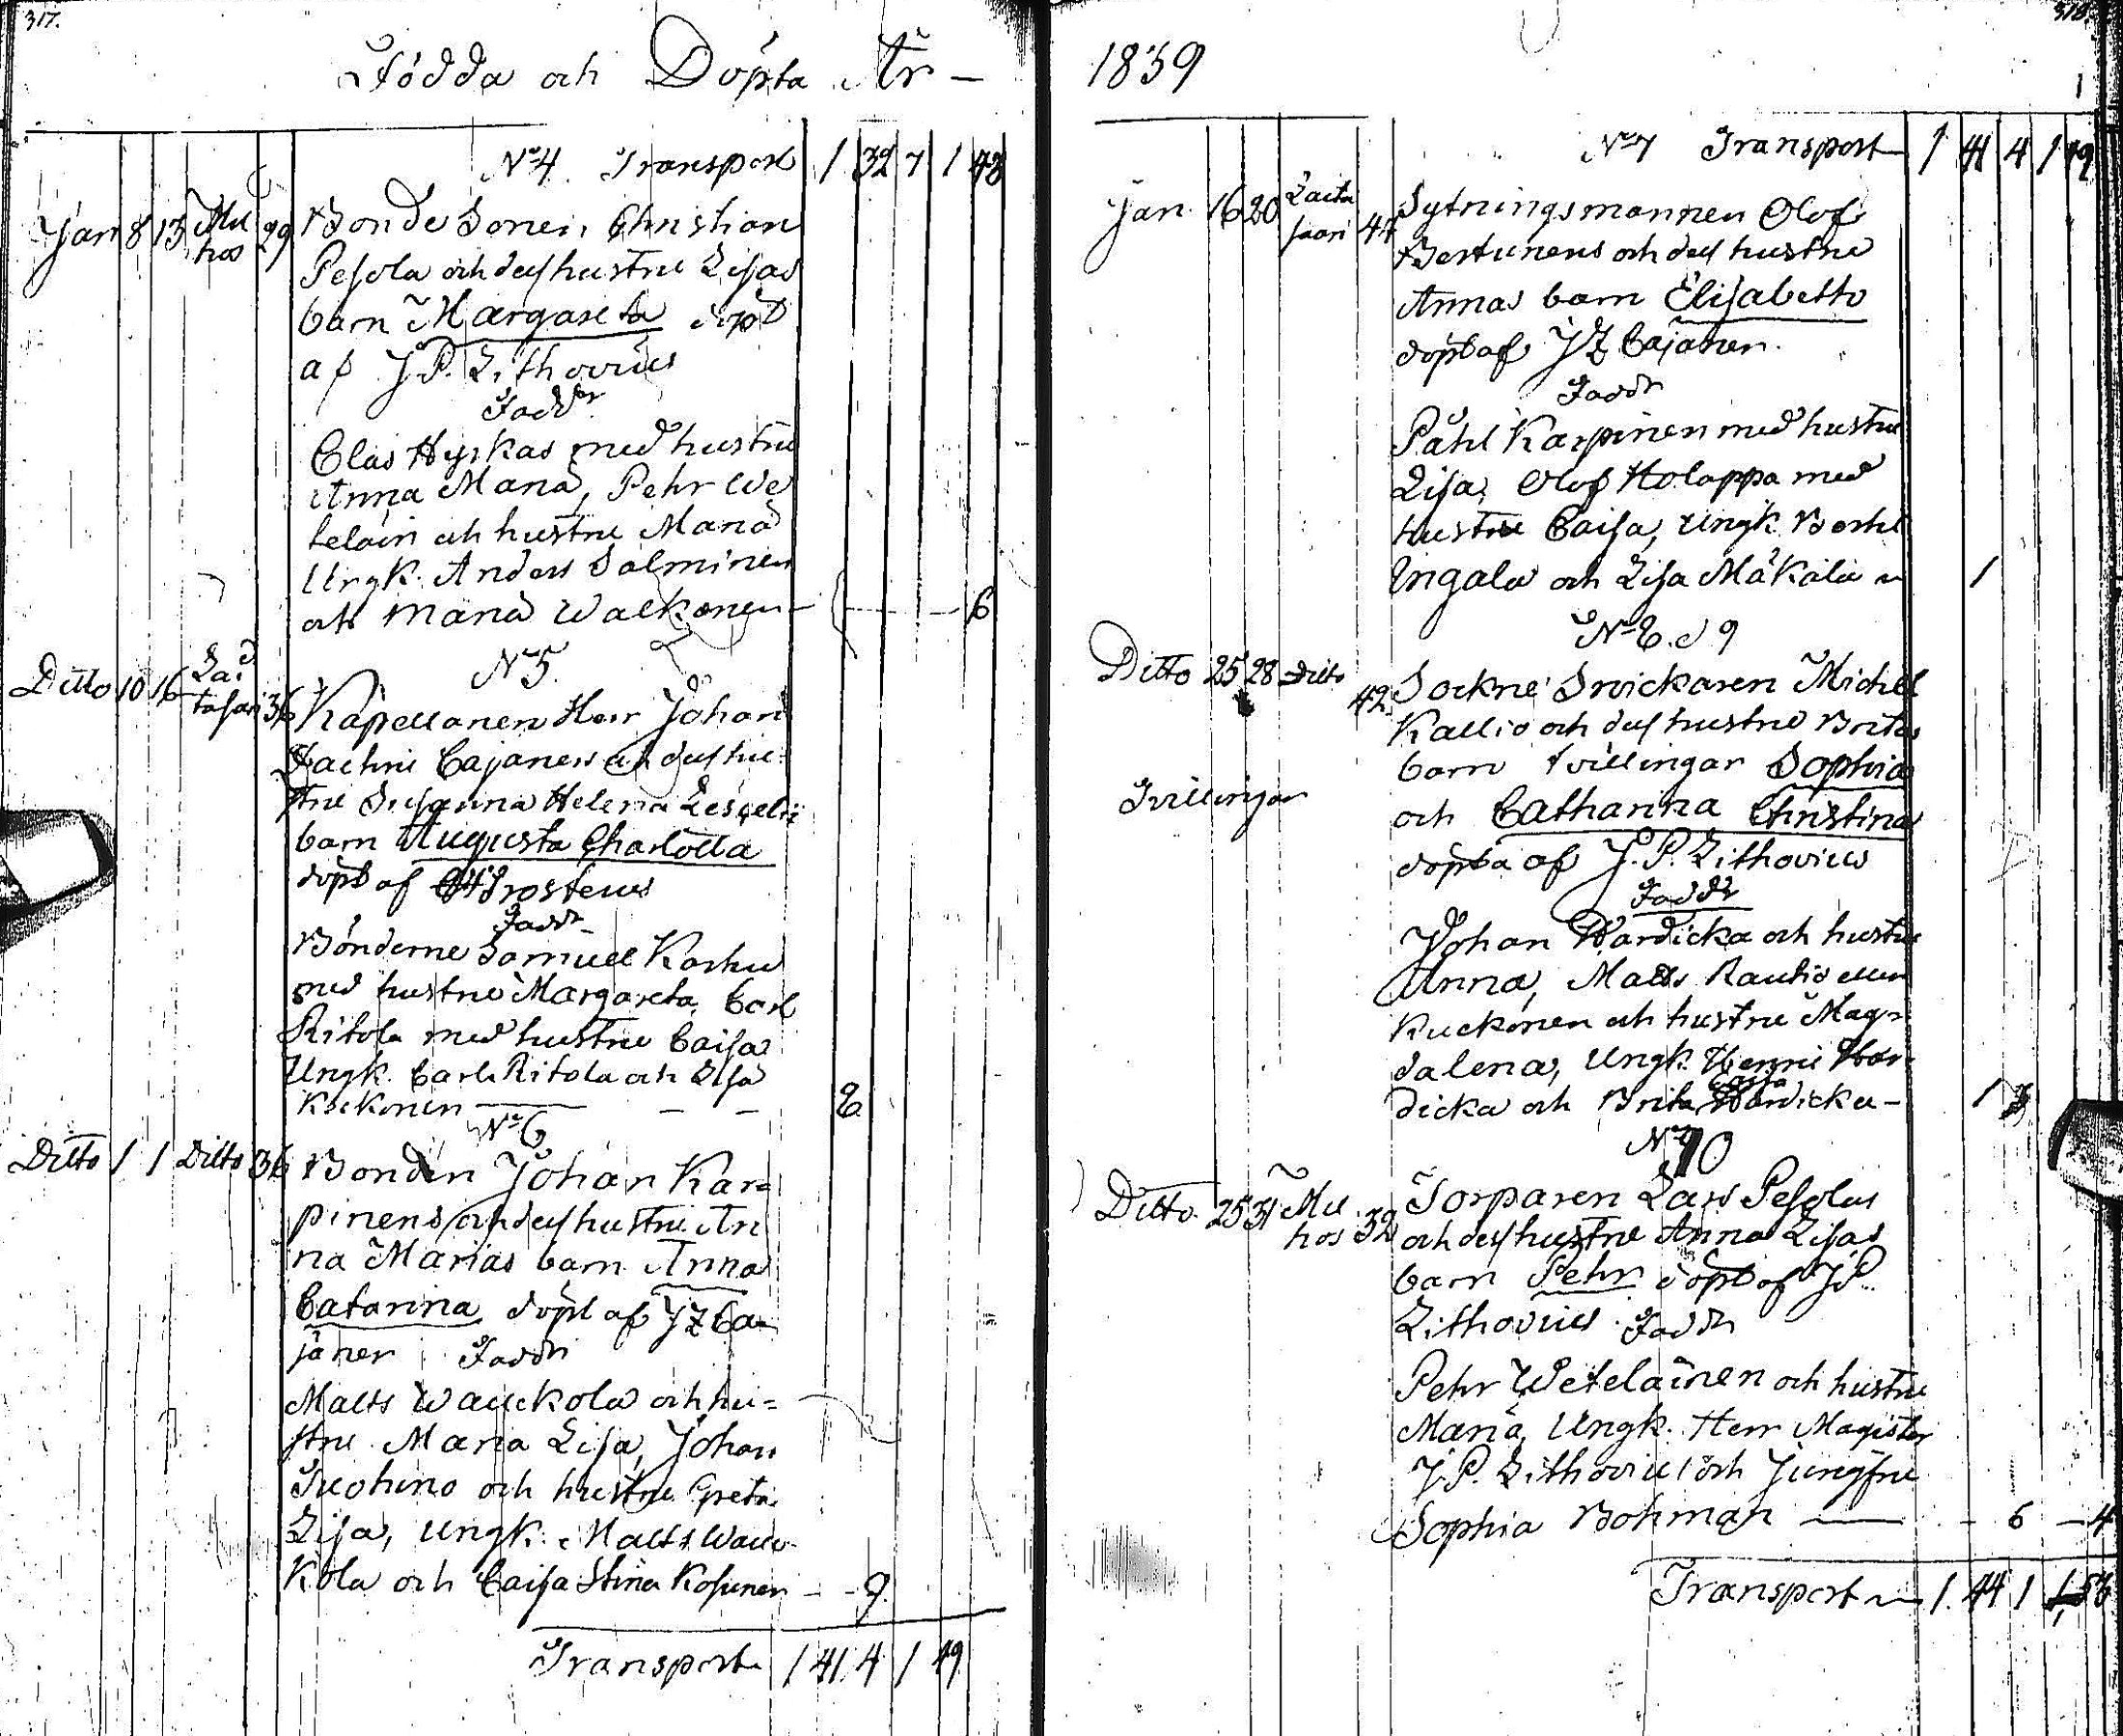 317.
Födda och Döpta År –
No 4. Transport 1 32 7 1 48
Jan 8 13 Mu
hos 29 Bonde Sonen Christian
Pesola och dess hustru Lisas
barn Margareta döpt
af J. P. Lithovius
Faddr
Clas Hyrkas med hustru
Anna Maria, Pehr We
teläin och hustru Maria
Ungk. Anders Salminen
och Maria Walkonen – – – 6
No 5.
Ditto 10 16 Lai
tasari 36 Kapellanen Herr Johan
Cajaners och dess hu=
stru Susanna Helena
barn Augusta Charlotta
döpt af Frosterus
Faddr
Bönderne Samuel Karhu
med hustru Margareta, Carl
Ritola med hustru Caisa
Ungk. Carl Ritola och Lisa
Kockonen – – – 2
No 6
Ditto 1 1 Ditto 36 Bonden Johan Kar=
pinens och dess hustru An
na Marias barn Anna
Catarina döpt af J Z Ca=
janer Faddr
Matts Wauckola och hu=
stru Maria Lisa, Johan
Suohino och hustru Greta
Lisa, Ungk. Matts Wau
kola och Caisa Stina Kosunen – – 9.
Transport 1 41 4 1 49
318.
1839
1
No 7 Transport 1 41 4 1 49
Jan. 16 20 Laita
saari 44 Sytningsmannen Olof
och dess hustru
Annas barn Elisabetta
döpt af J Z Cajaner.
Faddr
Påhl Karpinen med hustru
Lisa, Olof Holappa med
hustru Caisa, Ungk. Bertil
Ungala och Lisa Mäkälä 1
No 8. o 9
Ditto 25 28 Ditto 42 Sockne Snickaren Michel
Kallio och dess hustru Britas
barn tvillingar Sophia
Tvillingar
och Catharina Christina
döpta af J. P. Lithovius
Faddr
Johan Wardicka och hustru
Anna, Matts Rautio eller
Kuckonen och hustru Mag=
dalena, Ungk. Henric War=
dicka och Brita Caisa Wardicka – 1
No 10
Ditto 25 31 Mu
hos 32 Torparen Lars Pesolas
och dess hustru Anna Lisas
barn Pehr döpt af J P
Lithovius. Faddr
Pehr Weteläinen och hustru
Maria, Ungk. Herr Magister
J. P. Lithovius och Jungfru
Sophia Bohman – – 6 – 4
Transport 1. 44 1 1 53